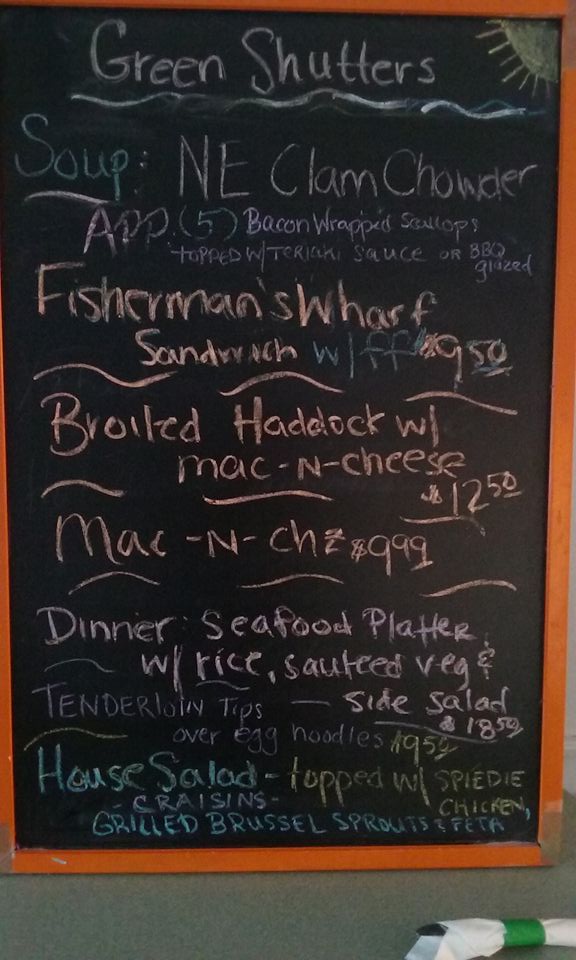 Green Shutters
Soup: NE Clam Chowder
App. (5) Bacon Wrapped Scallops
topped w/ Teriaki Sauce or BBQ
glazed
Fisherman's Wharf
Sandwich w/ ff $9.50
Broiled Haddock w/
mac-N-cheese
$12.50
Mac-N-chz $9.99
Dinner: Seafood Platter
w/ rice, sauteed veg &
side salad
$18.50
Tenderloin Tips
over egg noodles $9.50
House Salad - topped w/ SPIEDIE
CHICKEN,
- CRAISINS -
GRILLED BRUSSEL SPROUTS & FETA